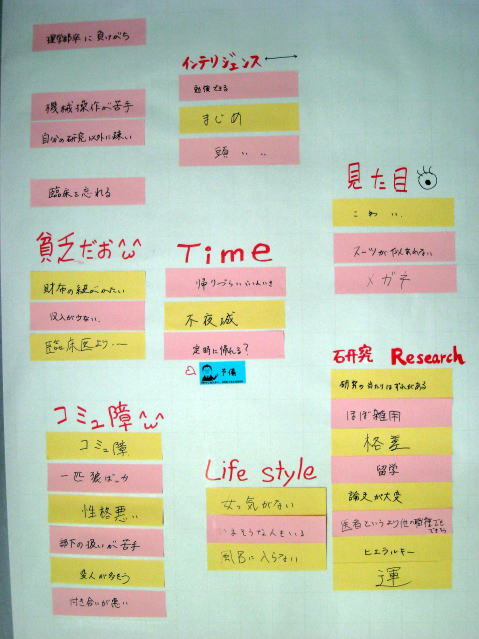 理学部卒に負けがち
機械操作が苦手
自分の研究以外に疎い
臨床を忘れる
インテリジェンス ⟷
勉強できる
まじめ
頭いい
見た目
こわい
スーツが
メガネ
貧乏だお^ω^
財布の紐がかたい
収入が少ない
臨床医より…
Time
帰りづらいふんいき
不夜城
定時に帰れる?
予備
コミュ障^ω^
コミュ障
一匹狼ばっか
性格悪い
部下の扱いが苦手
変人が多そう
付き合いが悪い
Life style
女っ気がない
ひまそうな人もいる
風呂に入らない
石研究 Research
研究の当たりはずれがある
ほぼ雑用
格差
留学
論文が大変
医者というより他の職種でも
できそう
ヒエラルキー
運